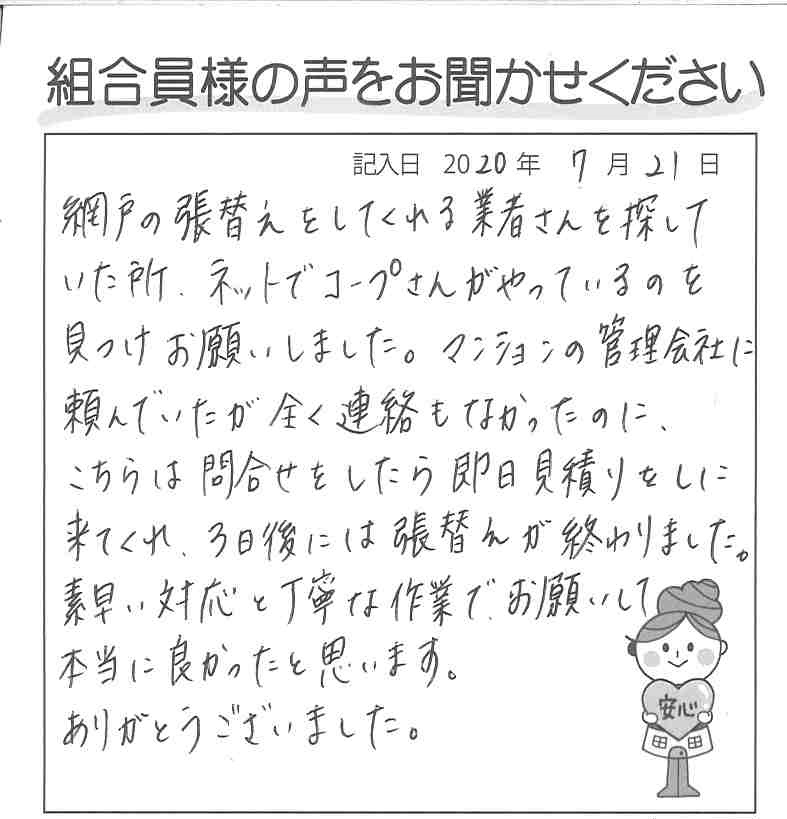 組合員様の声をお聞かせください
記入日 2020年 7月21日
網戸の張替えをしてくれる業者さんを探して
いた所、ネットでコープさんがやっているのを
見つけお願いしました。マンションの管理会社に
頼んでいたが全く連絡もなかったのに、
こちらは問合せをしたら即日見積りをしに
来てくれ、3日後には張替えが終わりました。
素早い対応と丁寧な作業で、お願いして
本当に良かったと思います。
ありがとうございました。
安心